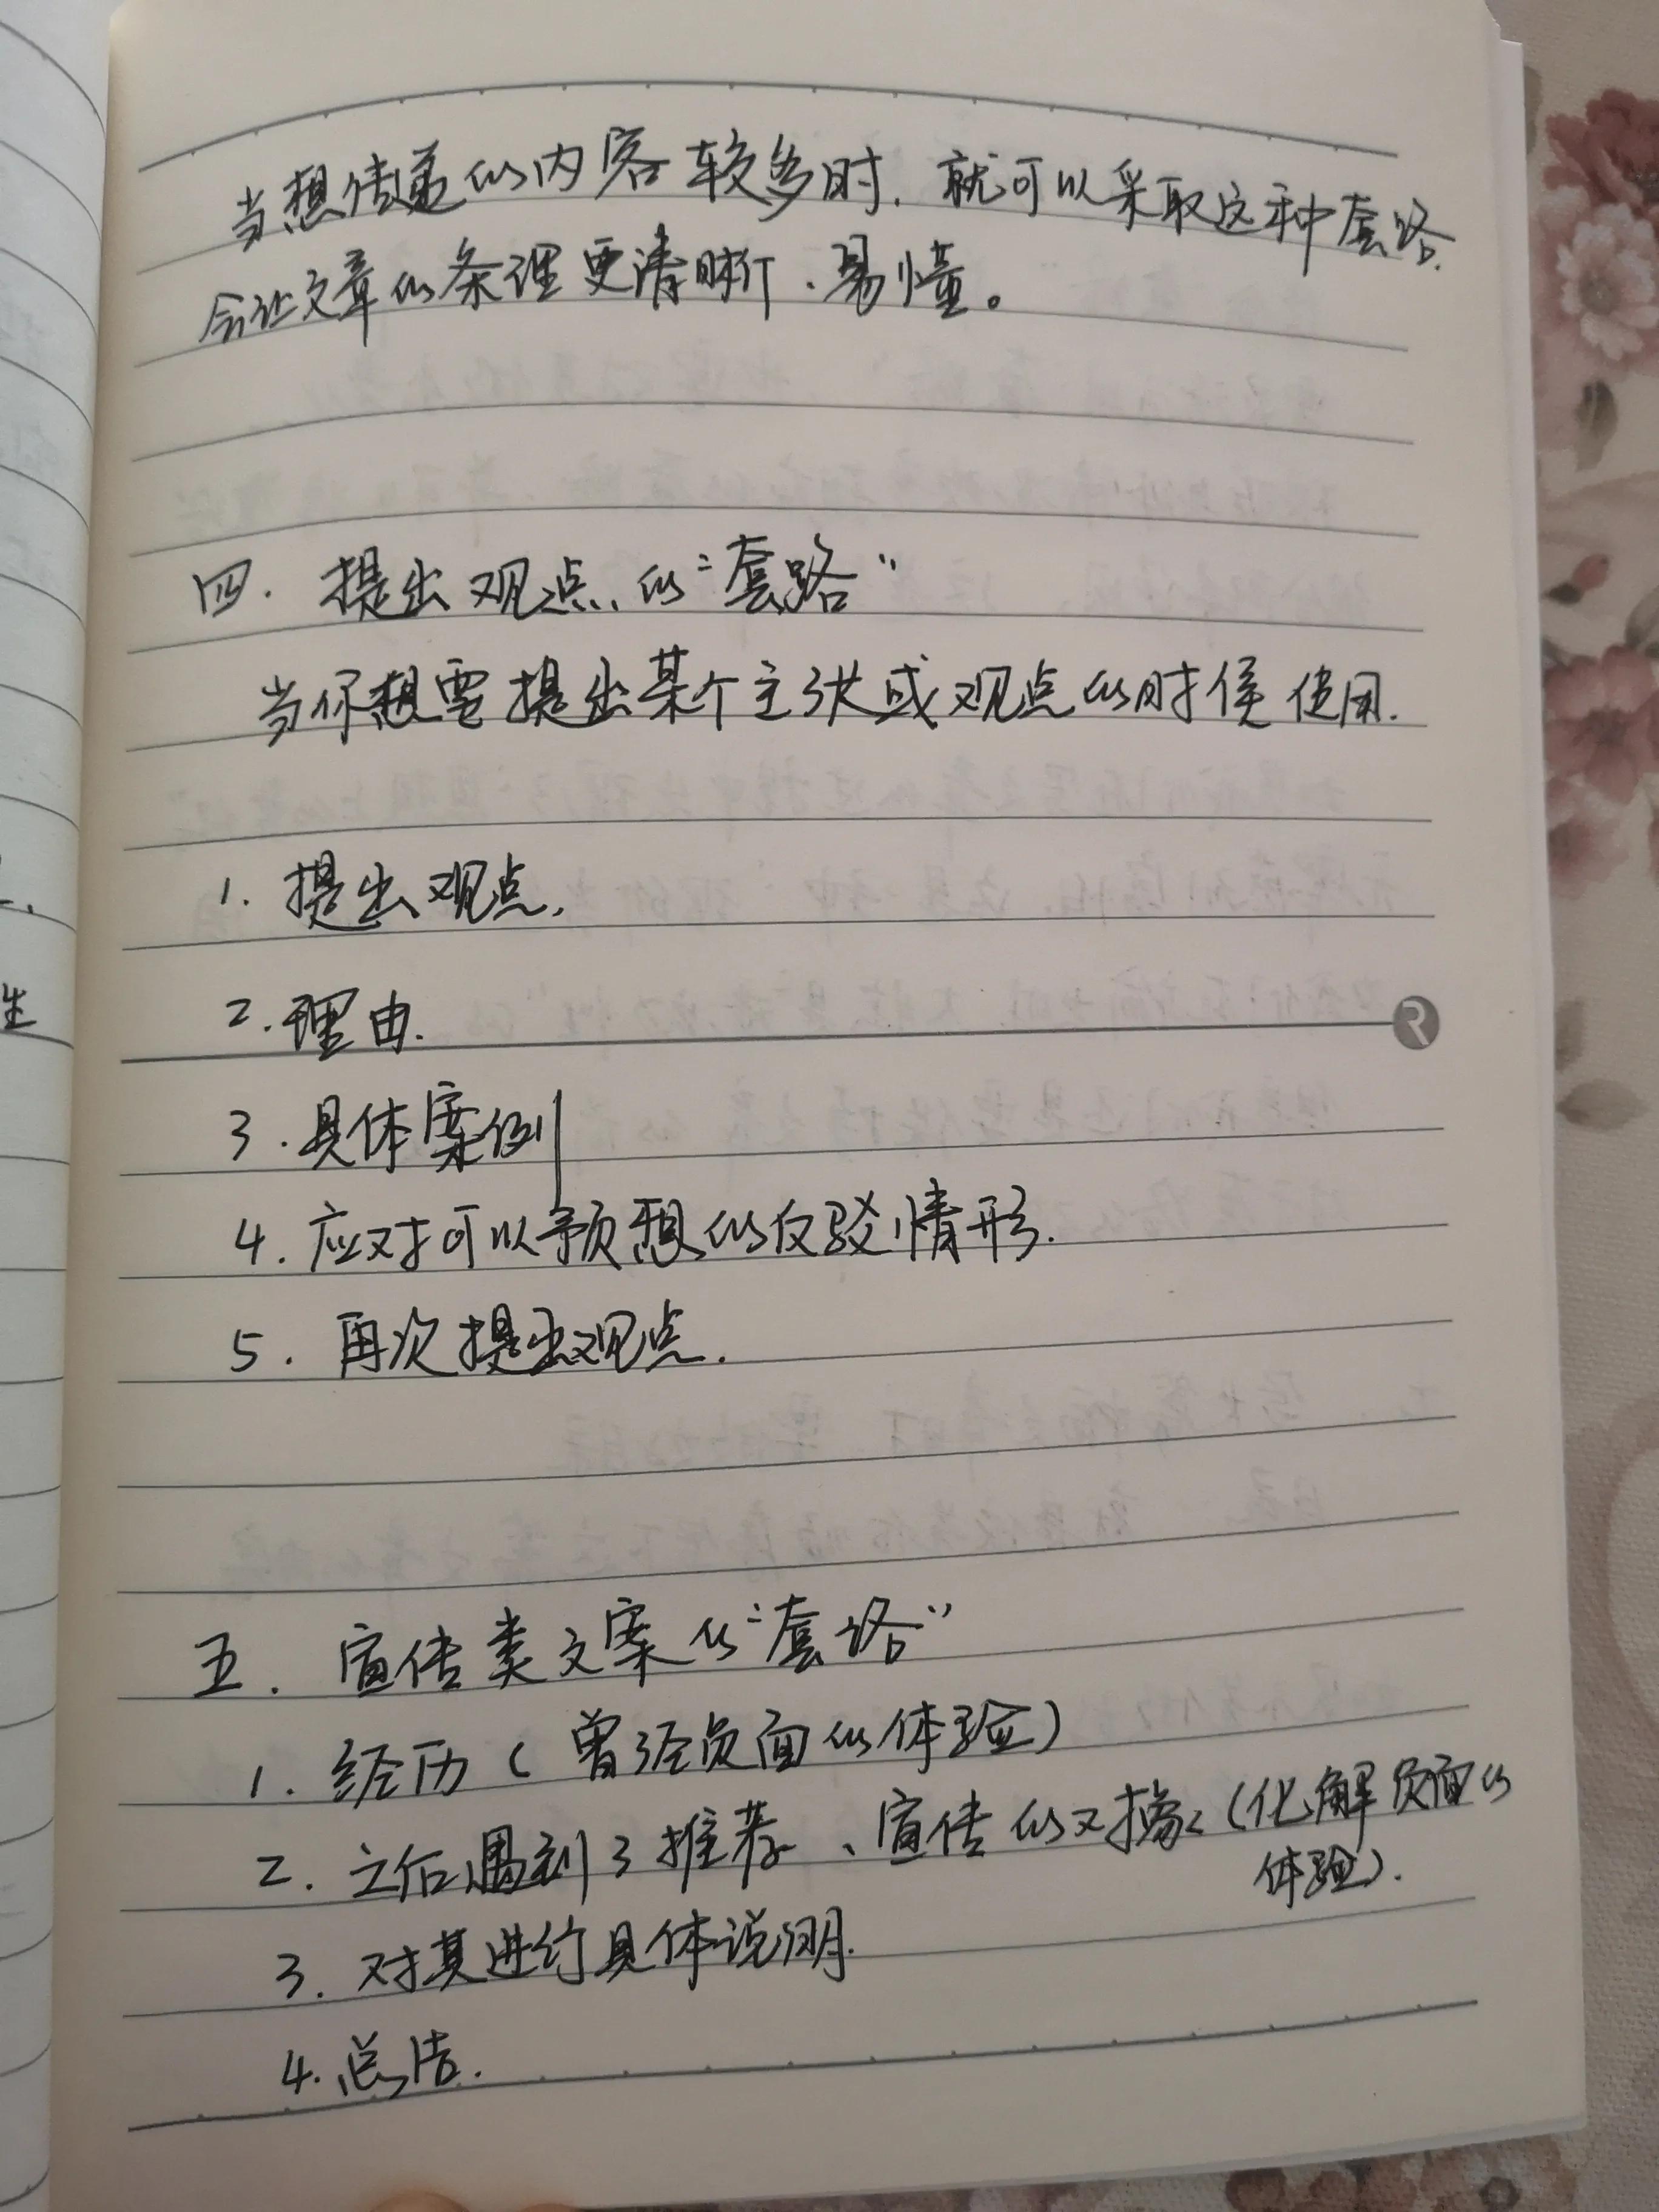 当想传递的内容较多时，就可以采取这种套路.
会让文章的条理更清晰、易懂。
四. 提出观点的“套路”
当你想要提出某个主张或观点的时候使用.
1. 提出观点.
2. 理由.
3. 具体案例
4. 应对可以预想的反驳情形.
5. 再次提出观点.
五. 宣传类文案的“套路”
1. 经历（曾经负面的体验）
2. 之后遇到了推荐、宣传的对象（化解负面的
体验）.
3. 对其进行具体说明.
4. 总结.
生
R